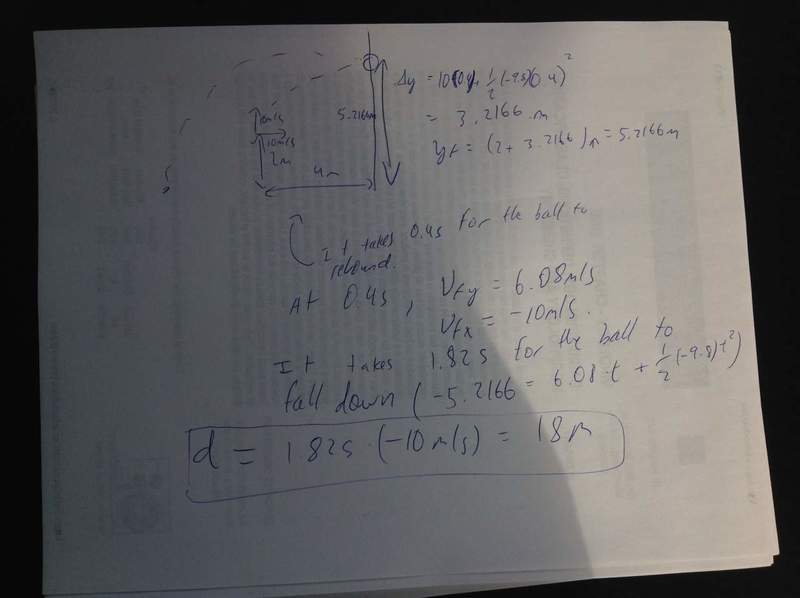 Δy = 10(0.4) + 1/2 (-9.8)(0.4)²
= 3.2166 m
yf = (2 + 3.2166)m = 5.2166m
5.2166m
10m/s
2m
4m
It takes 0.4s for the ball to
rebound.
At 0.4s, Vfy = 6.08m/s
Vfx = -10m/s.
It takes 1.82s for the ball to
fall down (-5.2166 = 6.08·t + 1/2 (-9.8)t²)
d = 1.82s · (-10m/s) = 18m